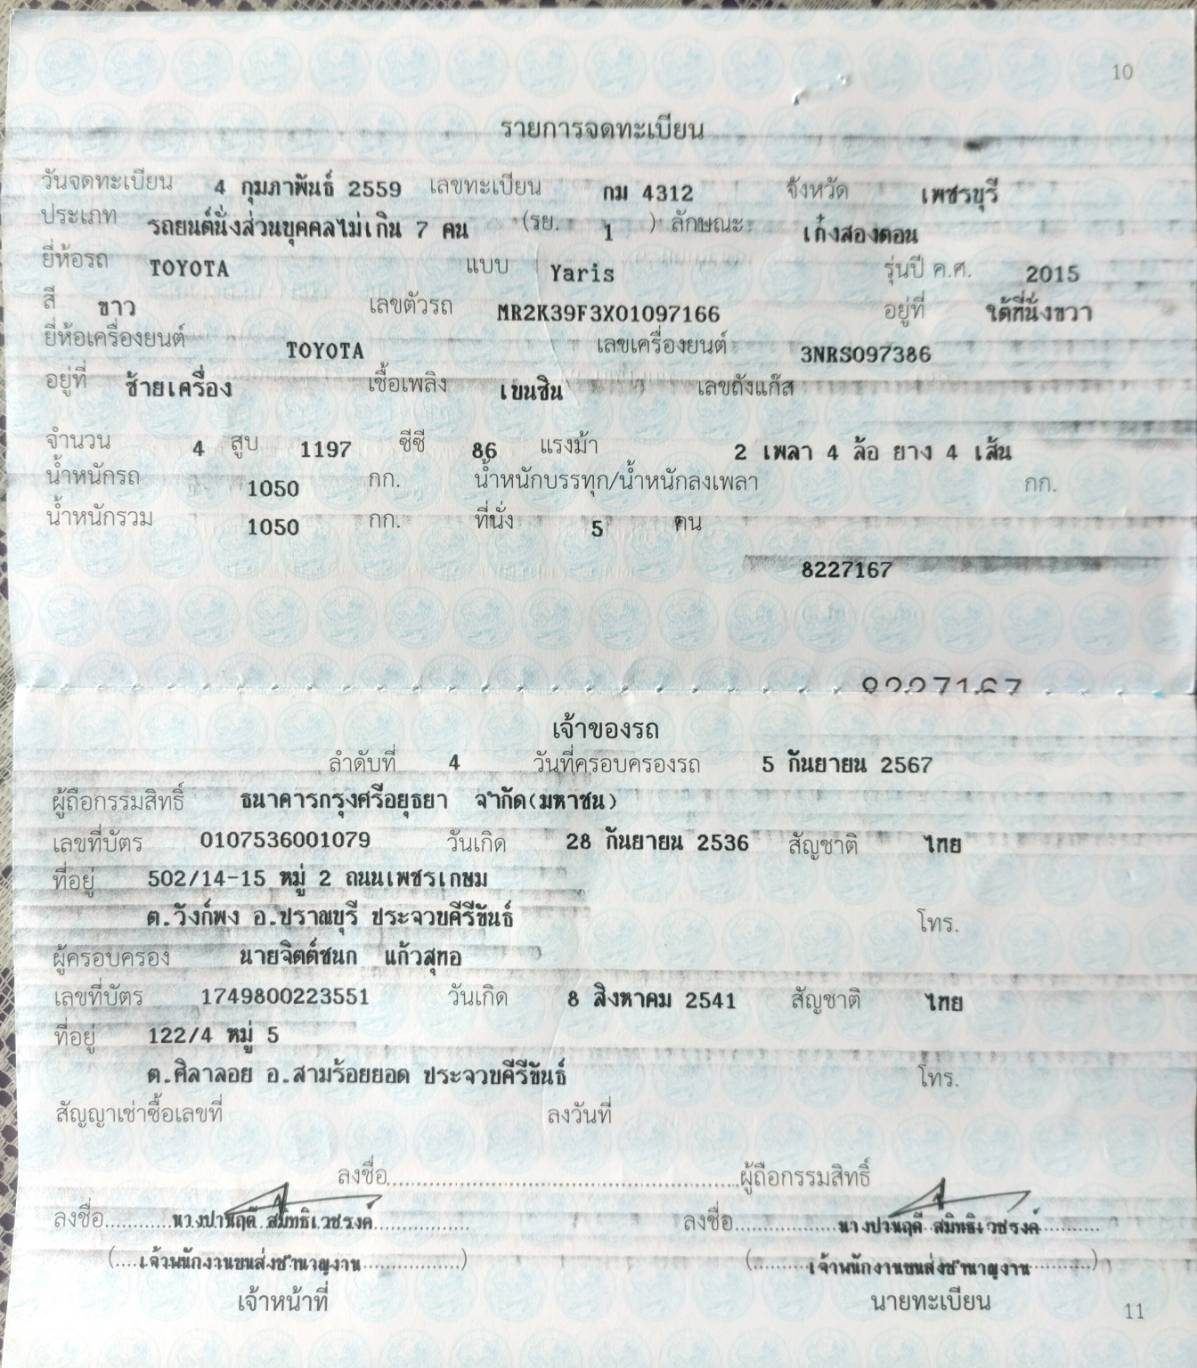 10
รายการจดทะเบียน
วันจดทะเบียน 4 กุมภาพันธ์ 2559 เลขทะเบียน กม 4312 จังหวัด เพชรบุรี
ประเภท รถยนต์นั่งส่วนบุคคลไม่เกิน 7 คน (รย. 1 ) ลักษณะ เก๋งสองตอน
ยี่ห้อรถ TOYOTA แบบ Yaris รุ่นปี ค.ศ. 2015
สี ขาว เลขตัวรถ MR2K39F3X01097166 อยู่ที่ ใต้ที่นั่งขวา
ยี่ห้อเครื่องยนต์ TOYOTA เลขเครื่องยนต์ 3NRS097386
อยู่ที่ ซ้ายเครื่อง เชื้อเพลิง เบนซิน เลขถังแก๊ส
จำนวน 4 สูบ 1197 ซีซี 86 แรงม้า 2 เพลา 4 ล้อ ยาง 4 เส้น
น้ำหนักรถ 1050 กก. น้ำหนักบรรทุก/น้ำหนักลงเพลา กก.
น้ำหนักรวม 1050 กก. ที่นั่ง 5 คน
8227167
8227167
เจ้าของรถ
ลำดับที่ 4 วันที่ครอบครองรถ 5 กันยายน 2567
ผู้ถือกรรมสิทธิ์ ธนาคารกรุงศรีอยุธยา จำกัด(มหาชน)
เลขที่บัตร 0107536001079 วันเกิด 28 กันยายน 2536 สัญชาติ ไทย
ที่อยู่ 502/14-15 หมู่ 2 ถนนเพชรเกษม
ต.วังก์พง อ.ปราณบุรี ประจวบคีรีขันธ์ โทร.
ผู้ครอบครอง นายจิตต์ชนก แก้วสุทอ
เลขที่บัตร 1749800223551 วันเกิด 8 สิงหาคม 2541 สัญชาติ ไทย
ที่อยู่ 122/4 หมู่ 5
ต.ศิลาลอย อ.สามร้อยยอด ประจวบคีรีขันธ์ โทร.
สัญญาเช่าซื้อเลขที่ ลงวันที่
ลงชื่อ ผู้ถือกรรมสิทธิ์
ลงชื่อ นางปานฤดี สมิทธิเวชรงค์ ลงชื่อ นางปานฤดี สมิทธิเวชรงค์
(เจ้าพนักงานขนส่งชำนาญงาน) (เจ้าพนักงานขนส่งชำนาญงาน)
เจ้าหน้าที่ นายทะเบียน
11